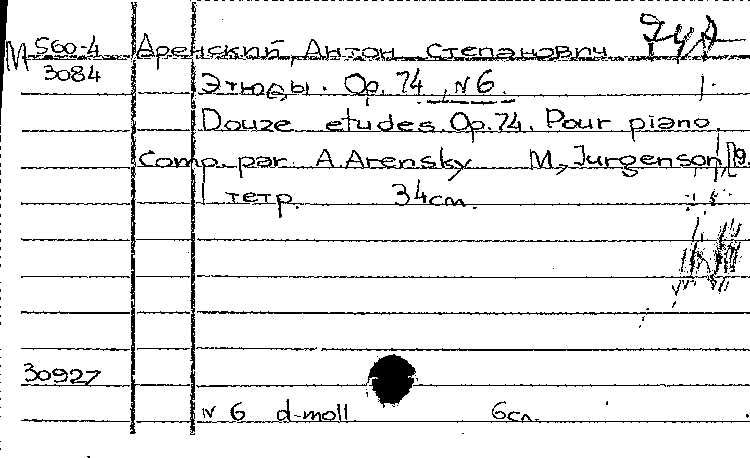 М 560-4 Аренский, Антон Степанович
3084
Этюды. Op. 74, N 6.
Douze etudes. Op. 74. Pour piano
comp. par. A. Arensky M., Jurgenson,
1 тетр. 34 см.
30927
N 6 d-moll 6 сл.